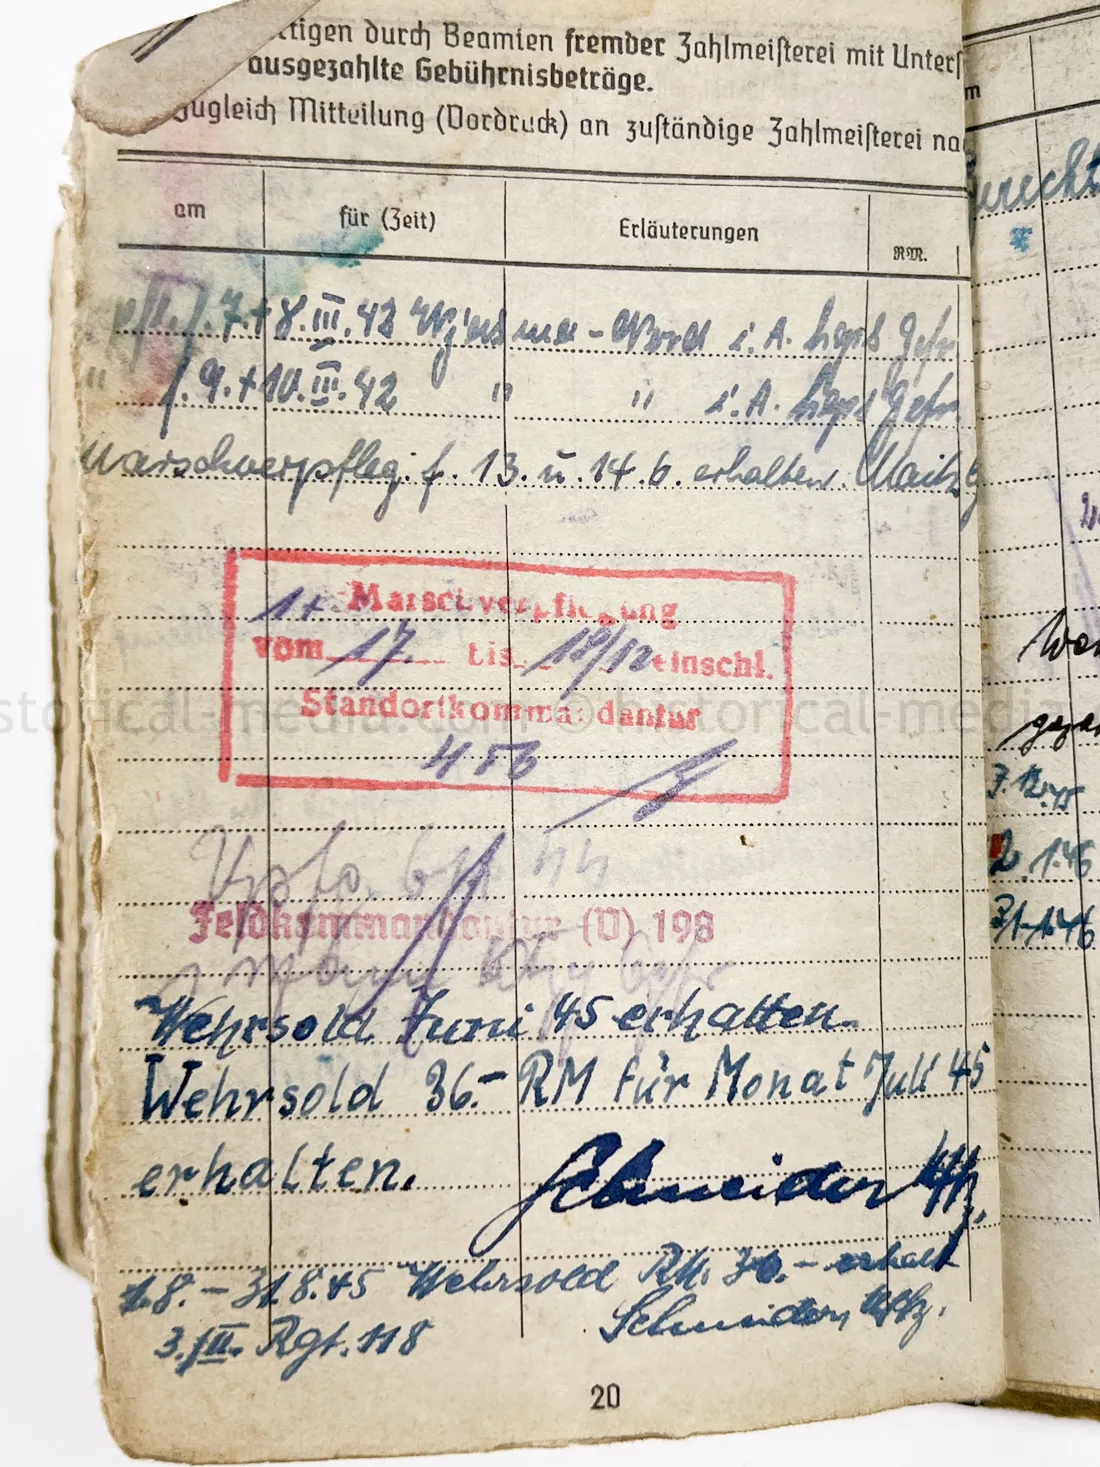 ttigen durch Beamten fremder Zahlmeisterei mit Unters
ausgezahlte Gebührnisbeträge.
Zugleich Mitteilung (Vordruck) an zuständige Zahlmeisterei na
am für (Zeit) Erläuterungen RM.
7.+8.III.42 - Nord i.A. Gefr
" f. 9.+10.III.42 " " i.A. Gefr
Marschverpfleg. f. 13. u. 14.6. erhalten.
1+ Marschverpflegung
vom 17. bis 18/12 einschl.
Standortkommandantur
456
Feldkommandantur (V) 198
Wehrsold Juni 45 erhalten.
Wehrsold 36.- RM für Monat Juli 45
erhalten. Schneider Uffz.
1.8.-31.8.45 Wehrsold RM. 36.- erhalt
3./III. Rgt. 118 Schneider, Uffz.
20
m
7.12.45
2.1.46
31.1.46
historical-media.com © historical-media